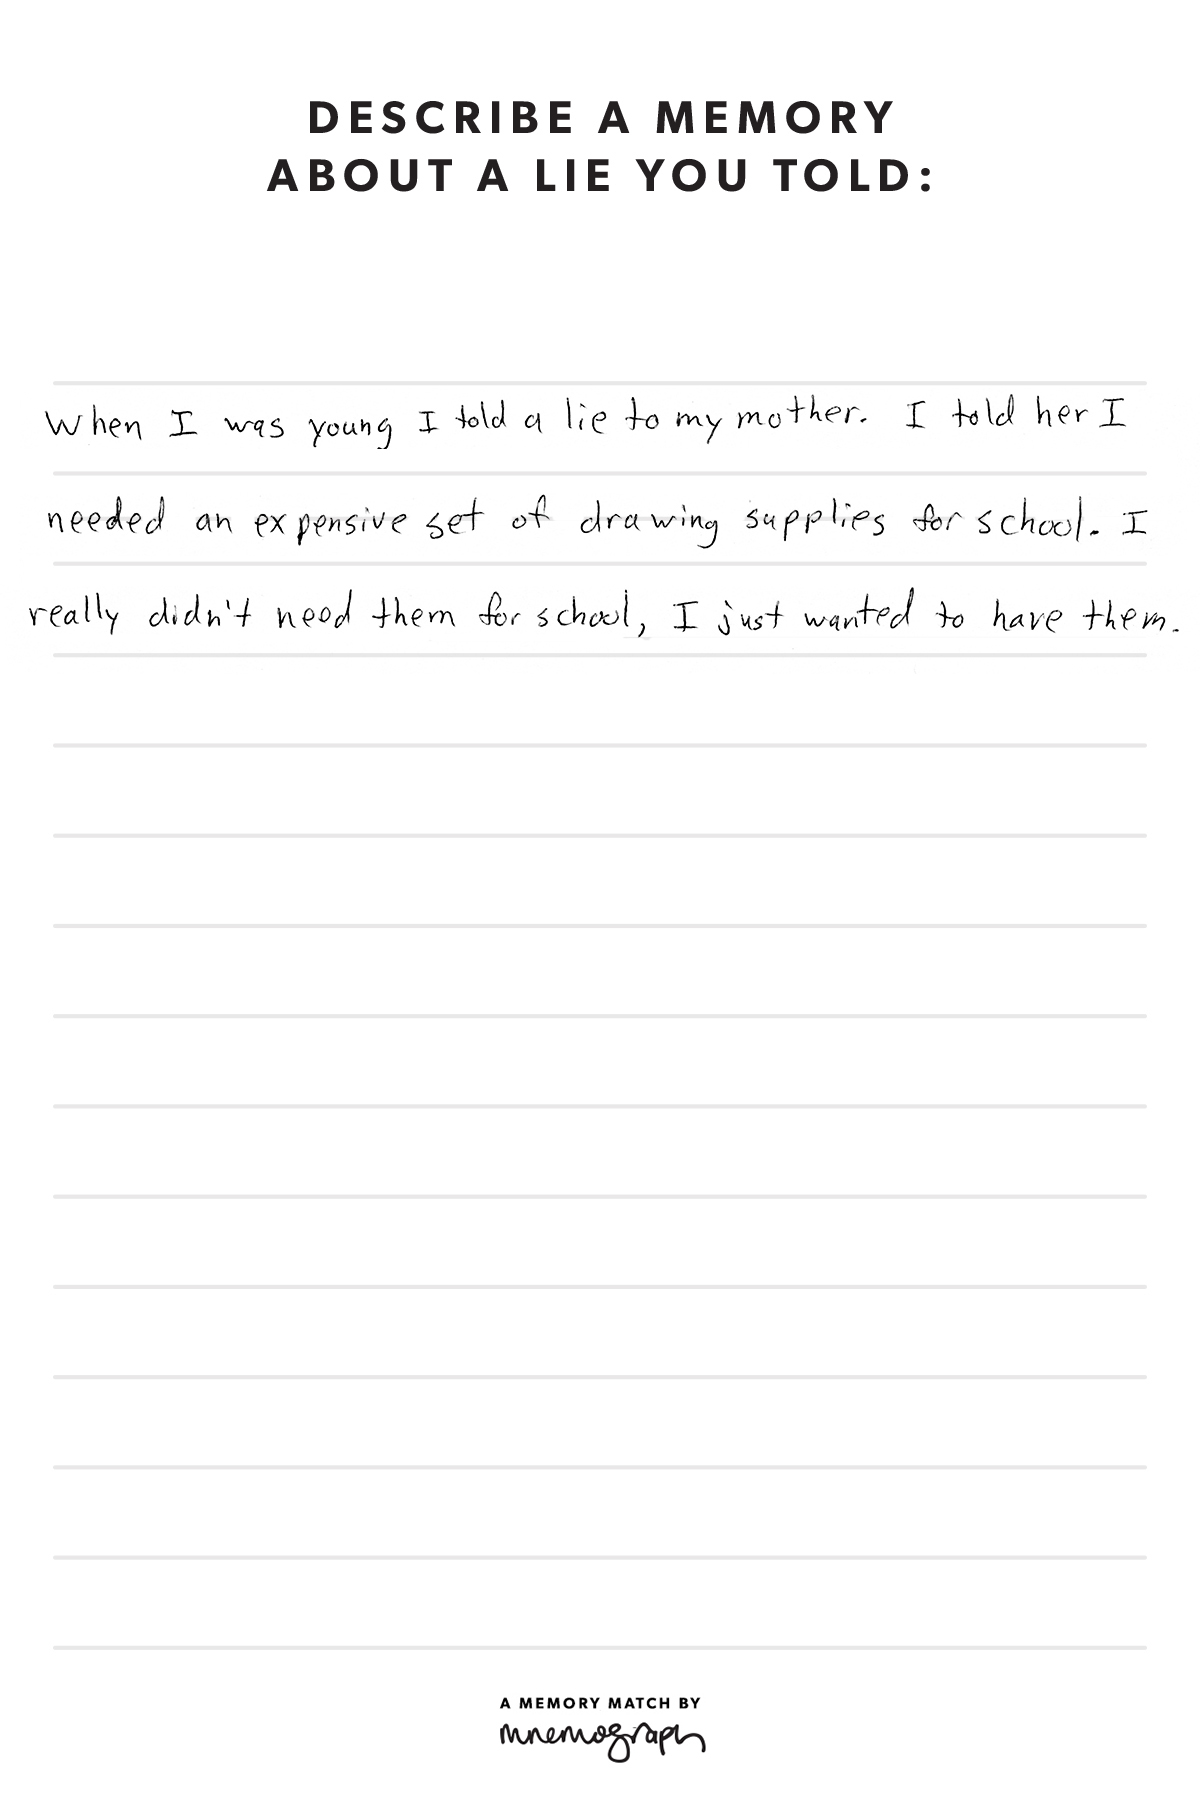 DESCRIBE A MEMORY
ABOUT A LIE YOU TOLD:
When I was young I told a lie to my mother. I told her I
needed an expensive set of drawing supplies for school. I
really didn't need them for school, I just wanted to have them.
A MEMORY MATCH BY
mnemograph